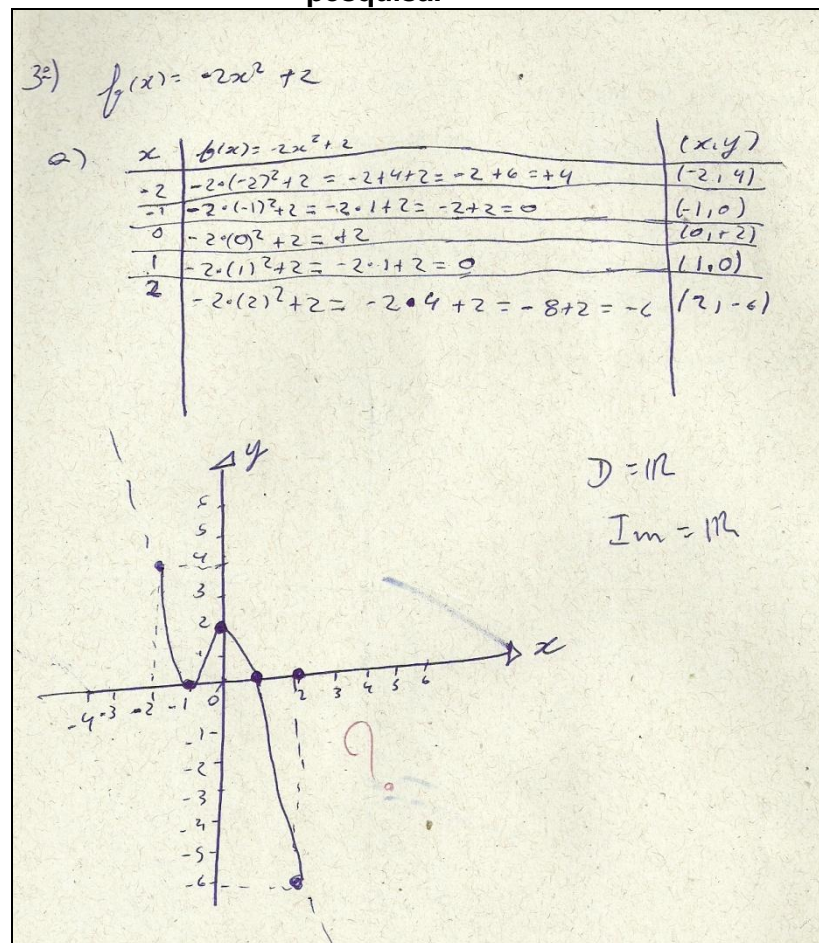 pesquisa.
3º) f(x) = -2x² + 2
a) x f(x) = -2x² + 2 (x, y)
-2 -2•(-2)² + 2 = -2+4+2 = -2+6 = +4 (-2, 4)
-1 -2•(-1)² + 2 = -2•1+2 = -2+2 = 0 (-1, 0)
0 -2•(0)² + 2 = +2 (0, +2)
1 -2•(1)² + 2 = -2•1+2 = 0 (1, 0)
2 -2•(2)² + 2 = -2•4+2 = -8+2 = -6 (2, -6)
y
D = ℝ
Im = ℝ
6
5
4
3
2
1
x
-4 -3 -2 -1 0 2 3 4 5 6
-1
-2
-3
-4
-5
-6
?